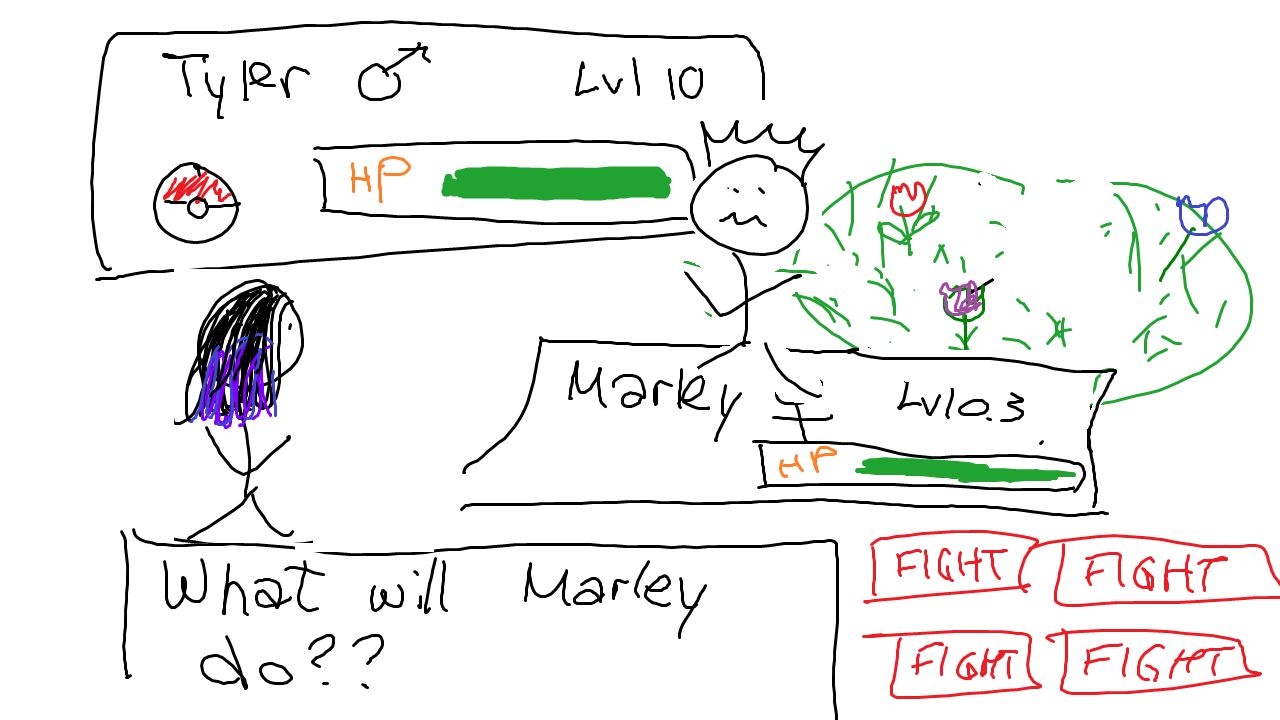 Tyler ♂ Lvl 10
HP
Marley Lvl 0.3
HP
What will Marley
do??
FIGHT FIGHT
FIGHT FIGHT